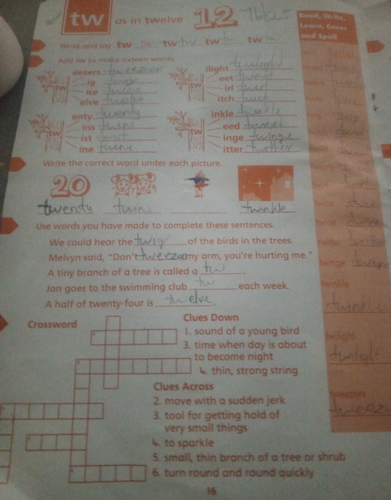 tw as in twelve 12
Read, Write, Learn, Cover and Spell
Write and say tw tw tw tw
Add tw to make sixteen words
eezers tweezer
ig
ice twice
elve twelve
ilight twilight
eet tweet
irl twirl
itch
enty twenty
ins twins
ist
ine twine
inkle twinkle
eed tweed
inge twinge
itter twitter
Write the correct word under each picture.
20
twenty twins twinkle
Use words you have made to complete these sentences
We could hear the twig of the birds in the trees.
Melvyn said, "Don't tweezer my arm, you're hurting me."
A tiny branch of a tree is called a tw
Jan goes to the swimming club tw each week.
A half of twenty-four is twelve
Crossword
Clues Down
1. sound of a young bird
3. time when day is about to become night
4. thin, strong string
Clues Across
2. move with a sudden jerk
3. tool for getting hold of very small things
4. to sparkle
5. small, thin branch of a tree or shrub
6. turn round and round quickly
twinkle
twilight
tweezers
16